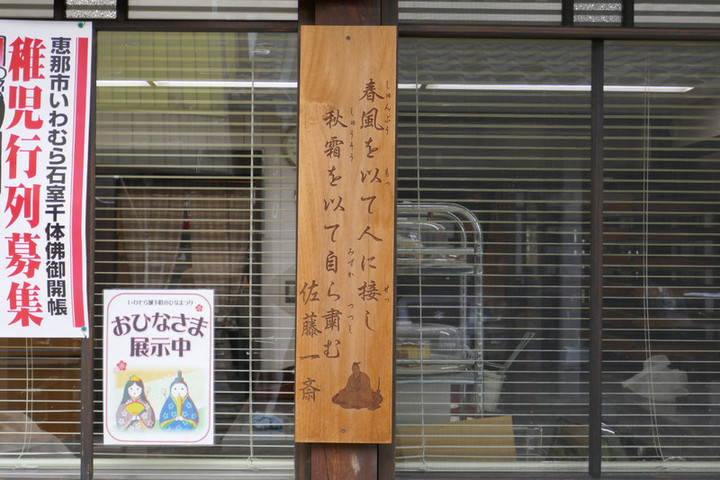 恵那市いわむら石室千体佛御開帳
稚児行列募集
春風を以て人に接し
しゅんぷう
もっ
せっ
秋霜を以て自ら粛む
しゅうそう
みずか
つつし
佐藤一斎
いわむら城下町のひなまつり
おひなさま
展示中